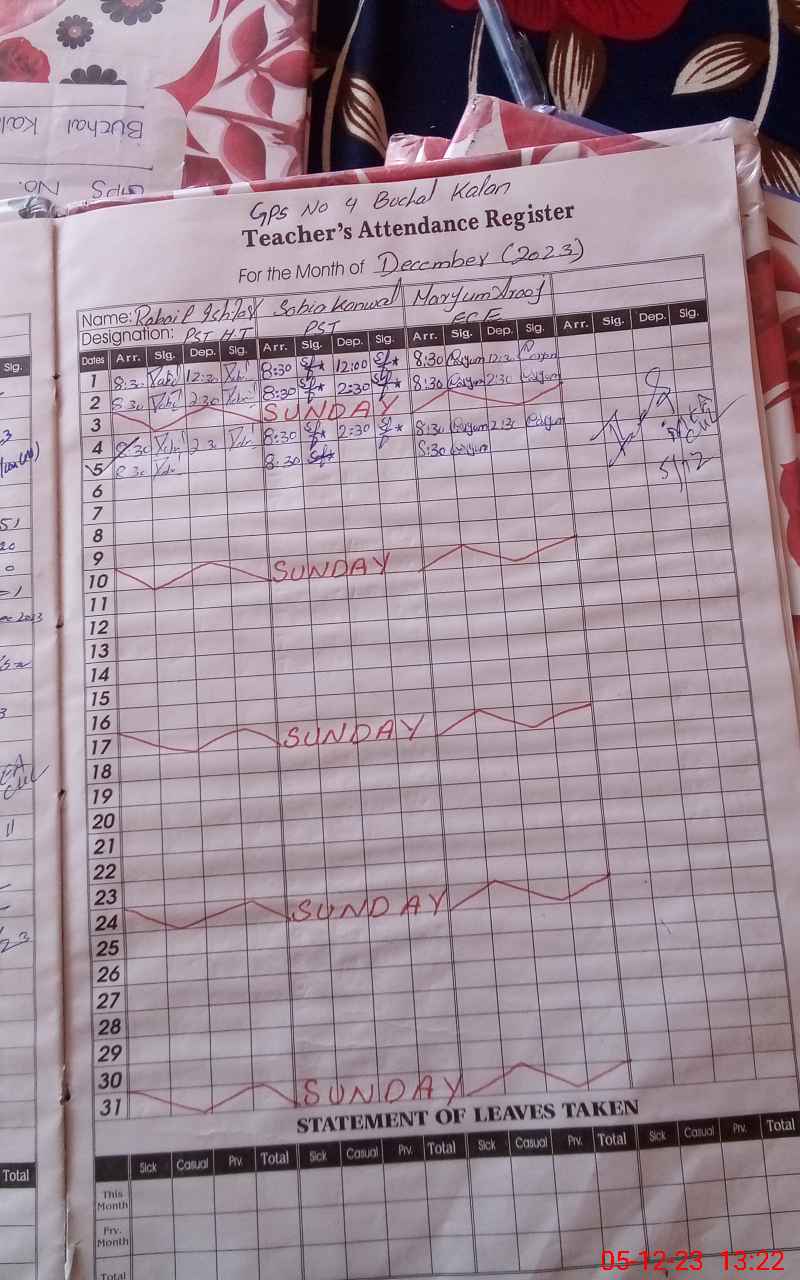 Buchal Kal
GPS No.
GPS No 4 Buchal Kalan
Teacher's Attendance Register
For the Month of December (2023)
Name: Rahail Ishfaq Sobia Kanwal Maryum Arooj
Designation: PST H.T PST ECE
Dates Arr. Sig. Dep. Sig. Arr. Sig. Dep. Sig. Arr. Sig. Dep. Sig. Arr. Sig. Dep. Sig.
1 8:30 12:30 8:30 12:00 8:30 12:30
2 8:30 2:30 8:30 2:30 8:30 2:30
3 SUNDAY
4 8:30 2:30 8:30 2:30 8:30 2:30
5 8:30 8:30 8:30 5/12
6
7
8
9
10 SUNDAY
11
12
13
14
15
16
17 SUNDAY
18
19
20
21
22
23
24 SUNDAY
25
26
27
28
29
30
31 SUNDAY
STATEMENT OF LEAVES TAKEN
Sick Casual Prv. Total Sick Casual Prv. Total Sick Casual Prv. Total Sick Casual Prv. Total
This Month
Prv. Month
Total
Sig.
Total
05-12-23 13:22